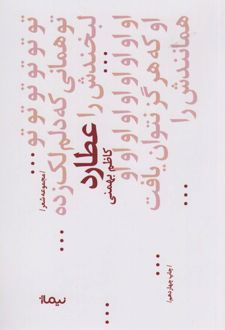 تو تو تو تو تو تو ...
تو همانی که دلم لک زده
لبخندش را ...
عطارد
کاظم بهمنی
|مجموعه شعر|
... او او او او او او او او
او که هرگز نتوان یافت ...
همانندش را ...
|چاپ چهاردهم|
نیماژ